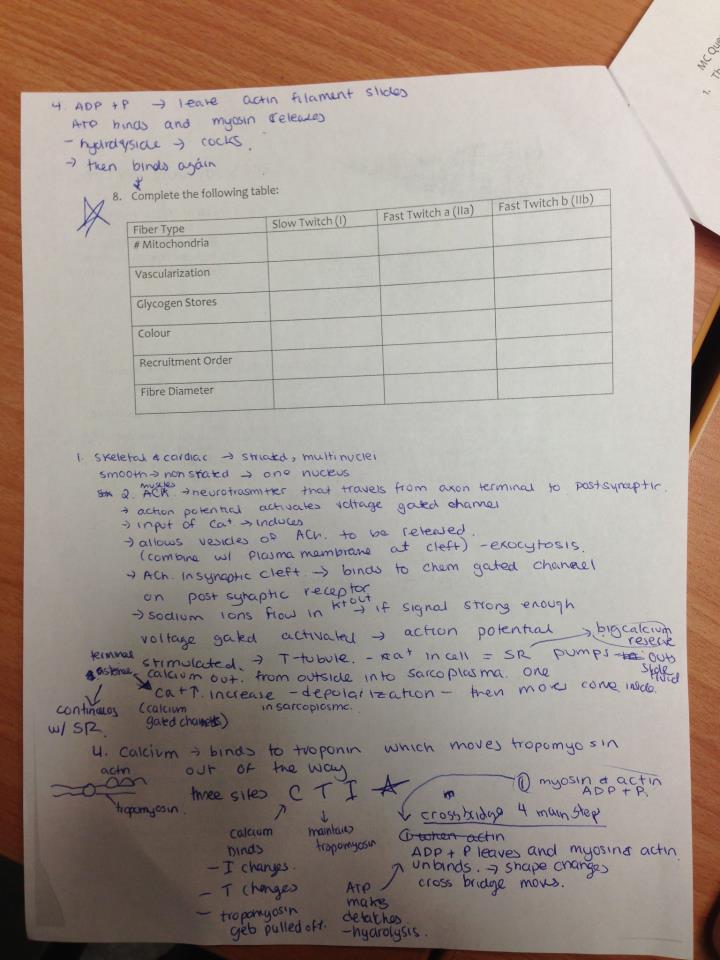 4. ADP + P → leave actin filament slides
ATP binds and myosin releases
- hydrolyside → cocks.
→ then binds again
8. Complete the following table:
Fiber Type Slow Twitch (I) Fast Twitch a (IIa) Fast Twitch b (IIb)
# Mitochondria
Vascularization
Glycogen Stores
Colour
Recruitment Order
Fibre Diameter
MC Que
1. Th
1. Skeletal & cardiac → striated, multinuclei
smooth → non strated → one nucleus
muscles
2. ACh. → neurotrasmitter that travels from axon terminal to postsynaptic.
→ action potential activates voltage gated channel
→ input of Ca+ → induces
→ allows vesicles of ACh. to be released.
(combine w/ plasma membrane at cleft) - exocytosis.
→ ACh. in synaptic cleft. → binds to chem gated channel
on post synaptic receptor
→ sodium ions flow in K+ out → if signal strong enough
voltage gated activated → action potential → big calcium
reserve
terminal stimulated. → T-tubule. - Ca+ in cell = SR pumps outside fluid
cisternae calcium out. from outside into sarcoplasma. one
Ca+ ↑. increase - depolarization - then more come inside.
continuous w/ SR.
(calcium gated channels) in sarcoplasmc.
4. Calcium → binds to troponin which moves tropomyosin
out of the way
actin
tropomyosin.
three sites C T I
① myosin & actin
ADP + P.
crossbridge 4 main step
calcium binds
maintains tropomyosin
① when actin
ADP + P leaves and myosin & actin
unbinds. → shape changes
cross bridge moves.
- I changes.
- T changes
- tropomyosin gets pulled off.
ATP makes detatches.
- hydrolysis.